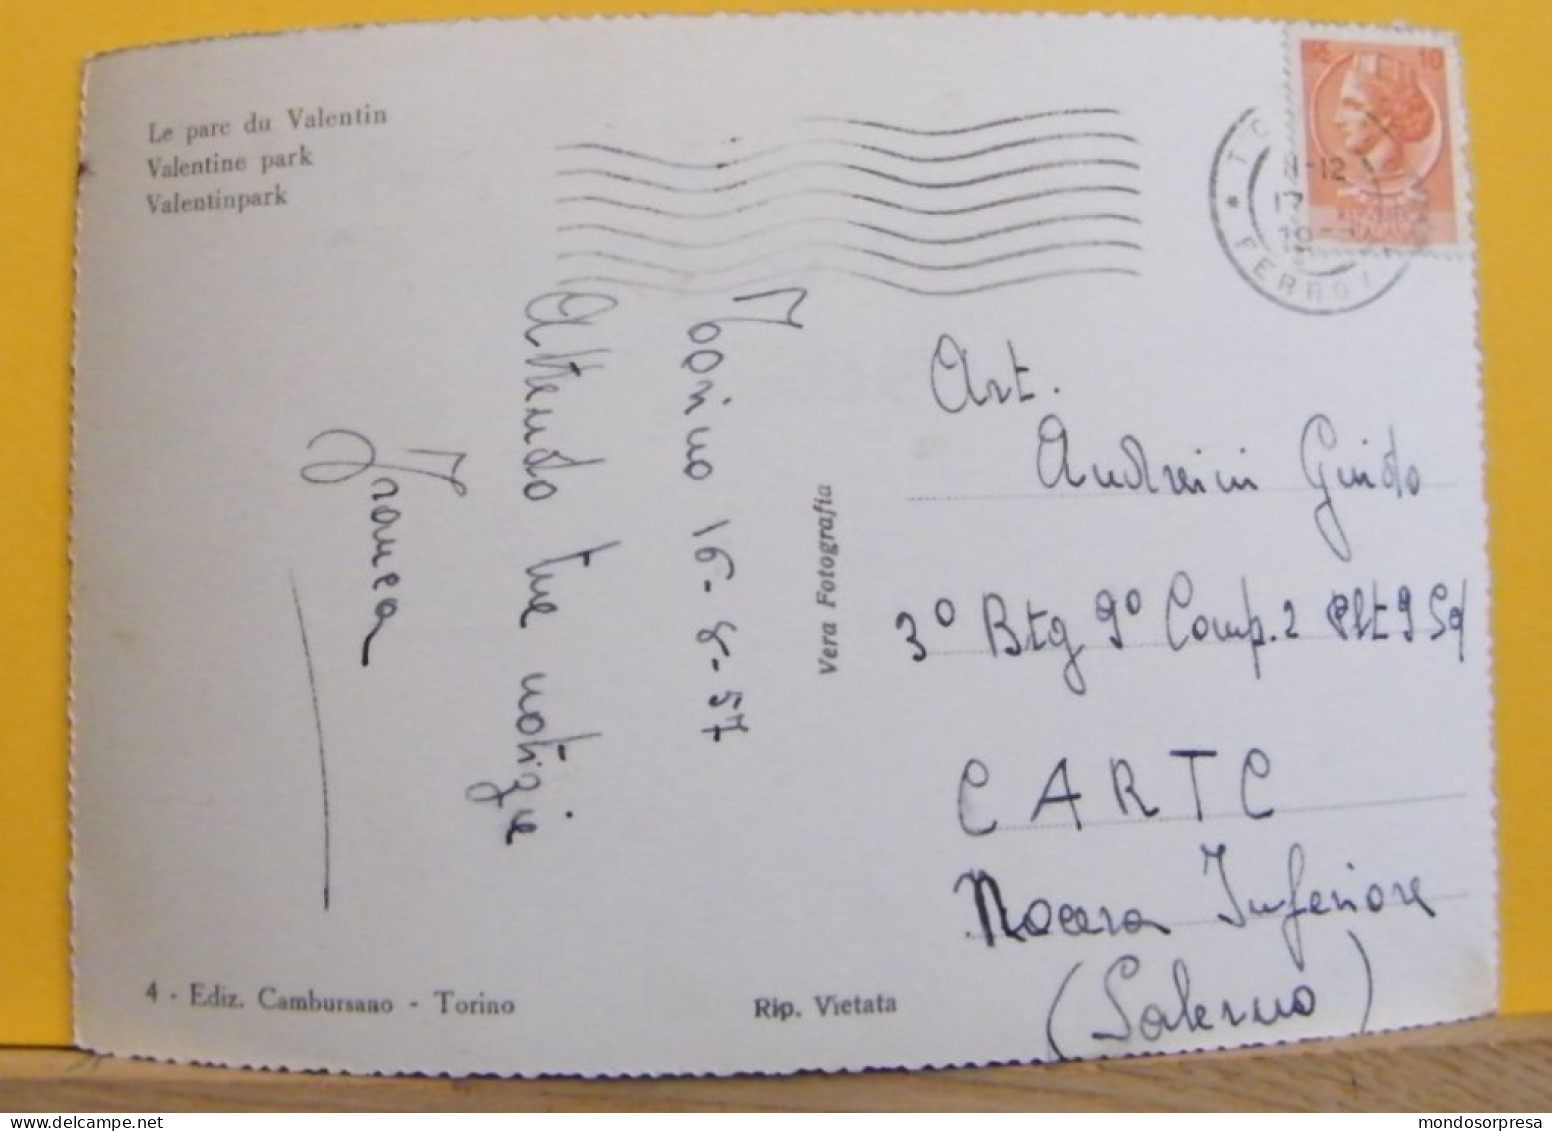 Le parc du Valentin
Valentine park
Valentinpark
10
8-12
17
FERROV
REPUBBLICA
ITALIANA
Torino 16-8-57
Attendo tue notizie
Franca
Vera Fotografia
Art.
Andreini Guido
3º Btg 9º Comp. 2 Plt 9 Sq
C A R T C
Nocera Inferiore
(Salerno)
4 - Ediz. Cambursano - Torino
Rip. Vietata
mondosorpresa